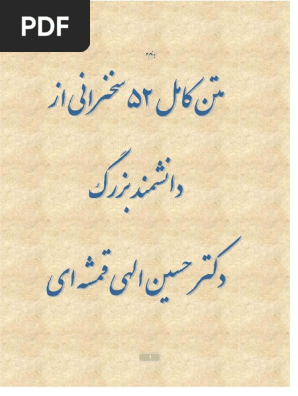 PDF
متن کامل ۵۲ سخنرانی از
دانشمند بزرگ
دکتر حسین الهی قمشه ای